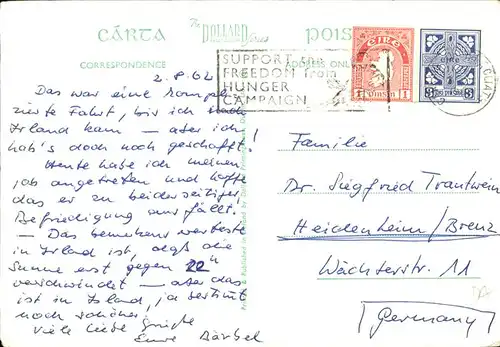 CÁRTA
The DOLLARD Series
POIS
CORRESPONDENCE
ADDRESS ONLY
SUPPORT the
FREEDOM from
HUNGER
CAMPAIGN
EIRE
1 PINGIN 1
EIRE
3 3
2.8.62
Das war eine kompli-
zierte Fahrt, bis ich nach
Irland kam – aber ich
hab's doch noch geschafft!
Heute habe ich meinen
Job angetreten und hoffe
das er zu beiderseitiger
Befriedigung ausfällt.
– Das bemerkenswerteste
in Irland ist, daß die
Sonne erst gegen 22 h
verschwindet – aber das
ist in Island, ja bestimmt
noch schöner.
Viele liebe Grüße
Eure Bärbel
Familie
Dr. Siegfried Trautwein
Heidenheim/Brenz
Wächterstr. 11
(Germany)